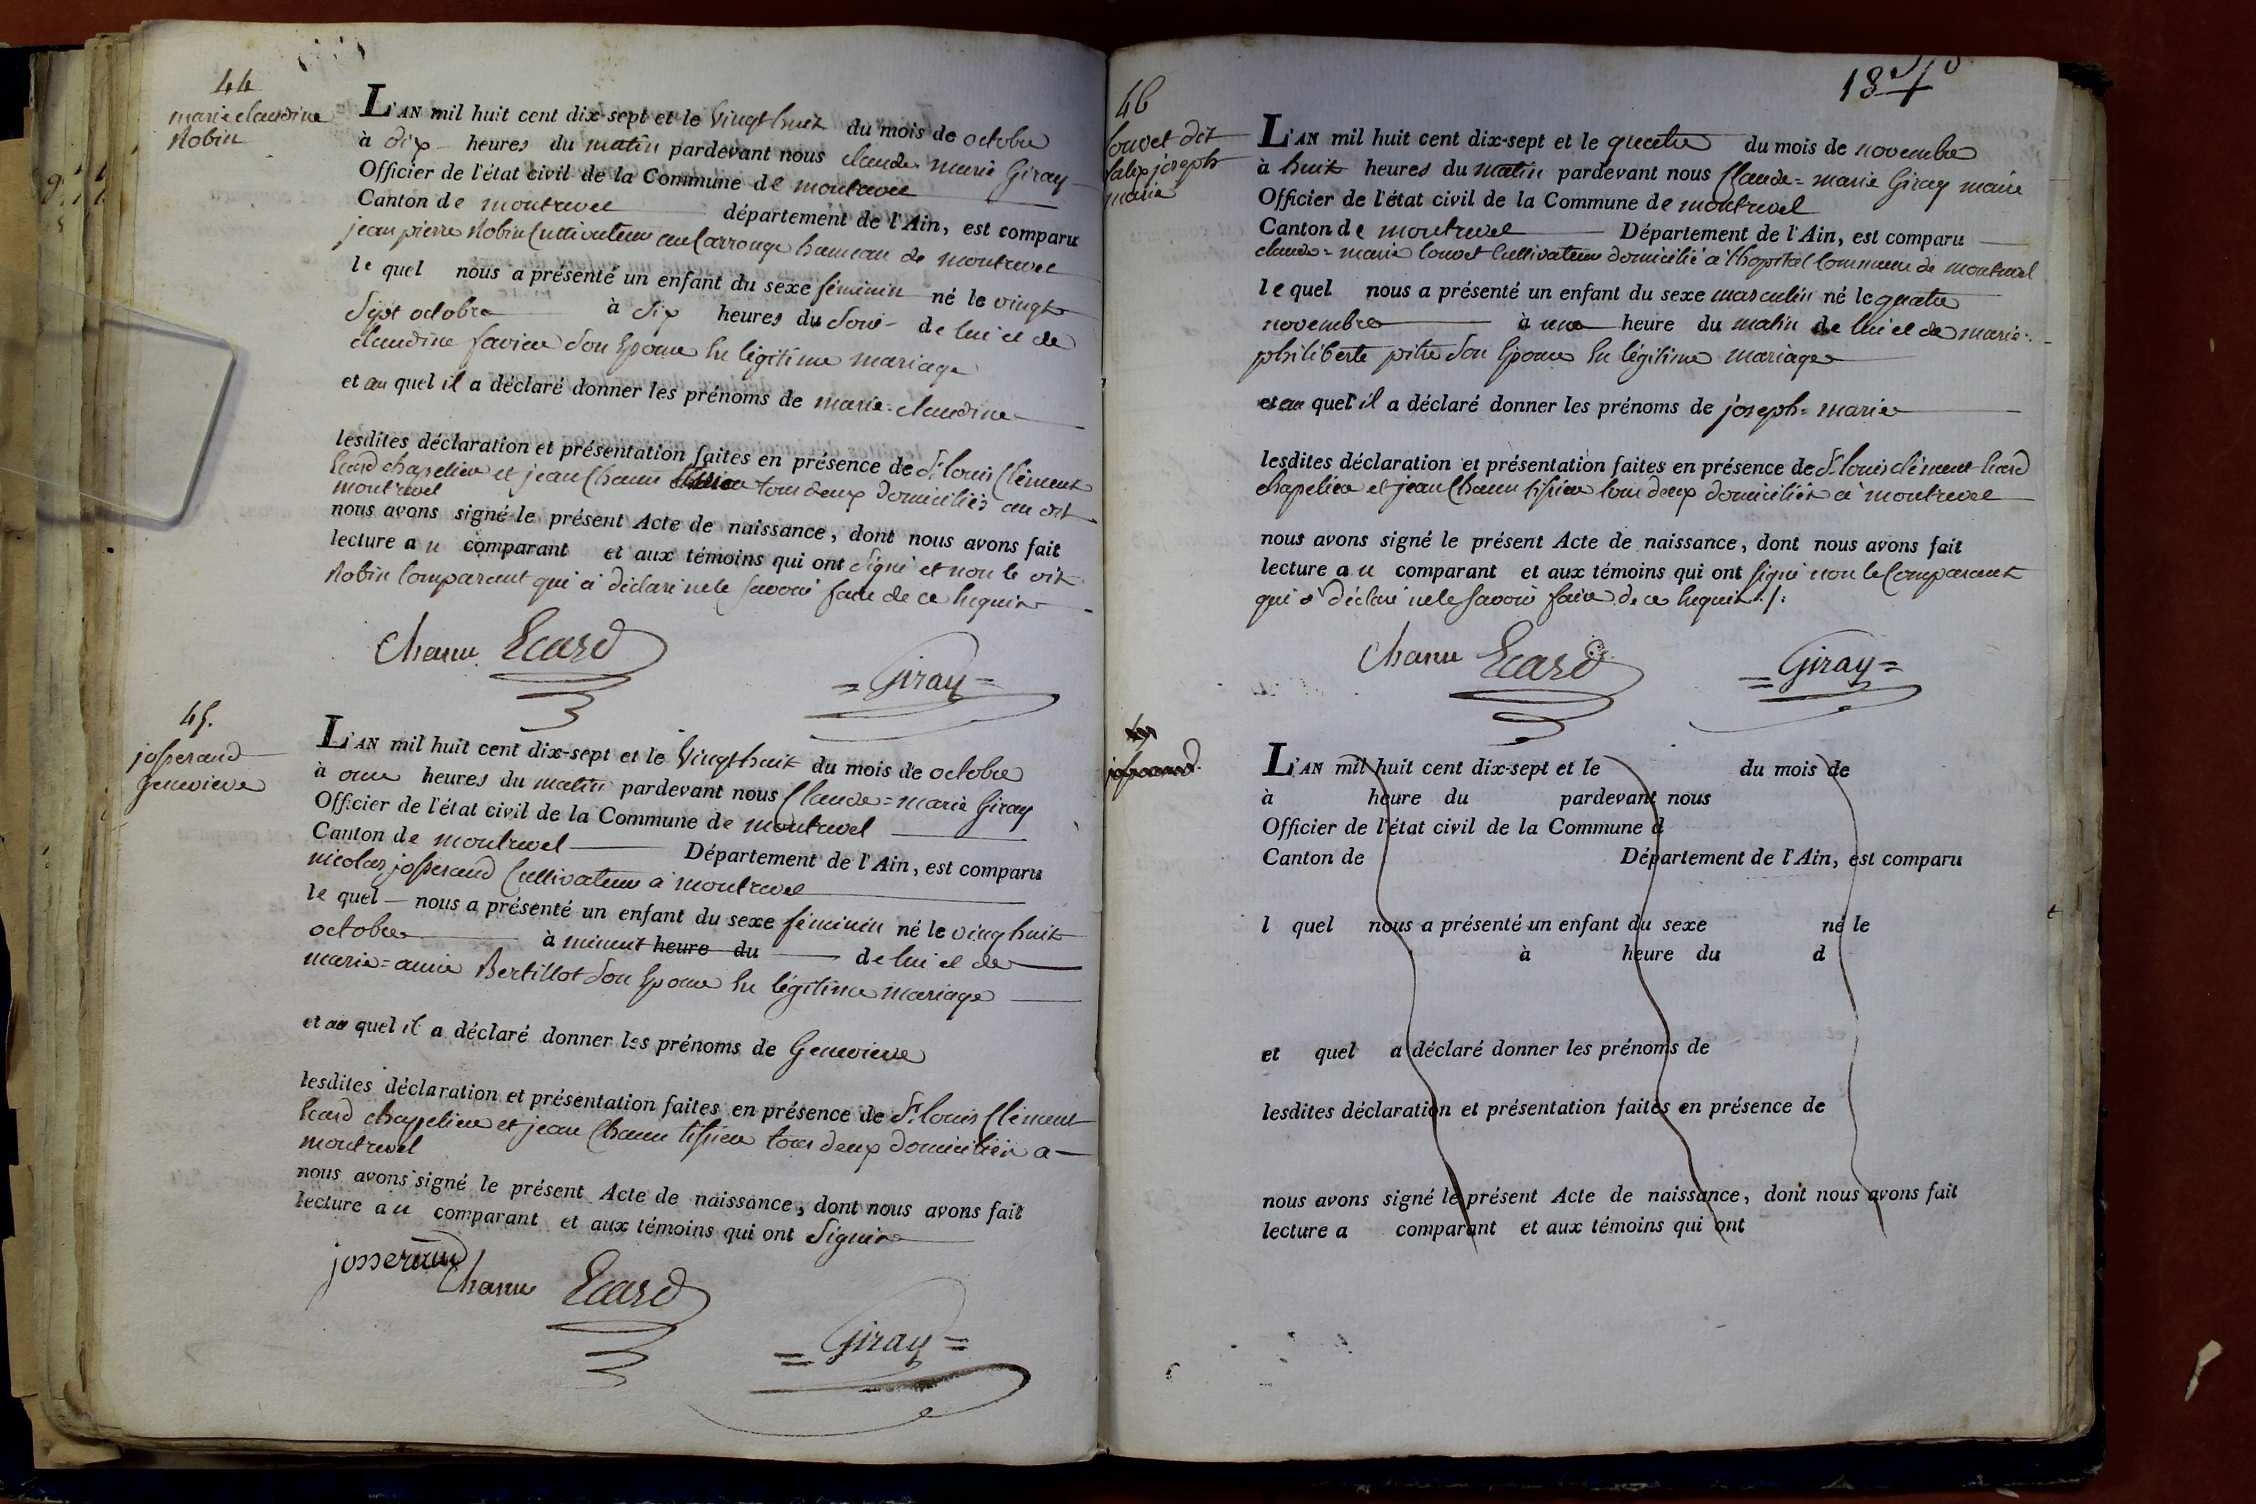 44
marie claudine
Robin
L'AN mil huit cent dix-sept et le vingt huit du mois de octobre
à dix heures du matin pardevant nous claude marie Giray
Officier de l'état civil de la Commune de montrevel
Canton de montrevel département de l'Ain, est comparu
jean pierre Robin Cultivateur au Carrouge hameau de montrevel
le quel nous a présenté un enfant du sexe féminin né le vingt
sept octobre à six heures du soir de lui et de
claudine favier son épouse en légitime mariage
et au quel il a déclaré donner les prénoms de marie-claudine
lesdites déclaration et présentation faites en présence de Sr. louis Clément
Ecard chapelier et jean Chanu tous deux domiciliés au dit
montrevel
nous avons signé le présent Acte de naissance, dont nous avons fait
lecture au comparant et aux témoins qui ont signé et non le dit
Robin Comparant qui a déclaré ne le savoir faire de ce requis
Chanu Ecard
=Giray=
45.
josserand
Genevieve
L'AN mil huit cent dix-sept et le vingt huit du mois de octobre
à onze heures du matin pardevant nous Claude=marie Giray
Officier de l'état civil de la Commune de montrevel
Canton de montrevel Département de l'Ain, est comparu
nicolas josserand Cultivateur a montrevel
le quel nous a présenté un enfant du sexe féminin né le vingt huit
octobre à minuit heure du de lui et de
marie=anne Bertillot son épouse en légitime mariage
et au quel il a déclaré donner les prénoms de Genevieve
lesdites déclaration et présentation faites en présence de Sr. louis Clément
Ecard chapelier et jean Chanu tissier tous deux domiciliés a
montrevel
nous avons signé le présent Acte de naissance, dont nous avons fait
lecture au comparant et aux témoins qui ont signés
josserand
Chanu Ecard
=Giray=
46
louvet dit
joseph
marie
L'AN mil huit cent dix-sept et le quatre du mois de novembre
à huit heures du matin pardevant nous Claude=marie Giray maire
Officier de l'état civil de la Commune de montrevel
Canton de montrevel Département de l'Ain, est comparu
claude=marie louvet Cultivateur domicilié a l'hopital Commune de montrevel
le quel nous a présenté un enfant du sexe masculin né le quatre
novembre à une heure du matin de lui et de marie
philiberte pitre son épouse en légitime mariage
et au quel il a déclaré donner les prénoms de joseph=marie
lesdites déclaration et présentation faites en présence de Sr. louis clément Ecard
chapelier et jean Chanu tissier tous deux domiciliés a montrevel
nous avons signé le présent Acte de naissance, dont nous avons fait
lecture au comparant et aux témoins qui ont signé non le Comparant
qui a déclaré ne le savoir faire de ce requis ./.
Chanu Ecard
=Giray=
L'AN mil huit cent dix-sept et le du mois de
à heure du pardevant nous
Officier de l'état civil de la Commune d
Canton de Département de l'Ain, est comparu
l quel nous a présenté un enfant du sexe né le
à heure du d
et quel a déclaré donner les prénoms de
lesdites déclaration et présentation faites en présence de
nous avons signé le présent Acte de naissance, dont nous avons fait
lecture a comparant et aux témoins qui ont